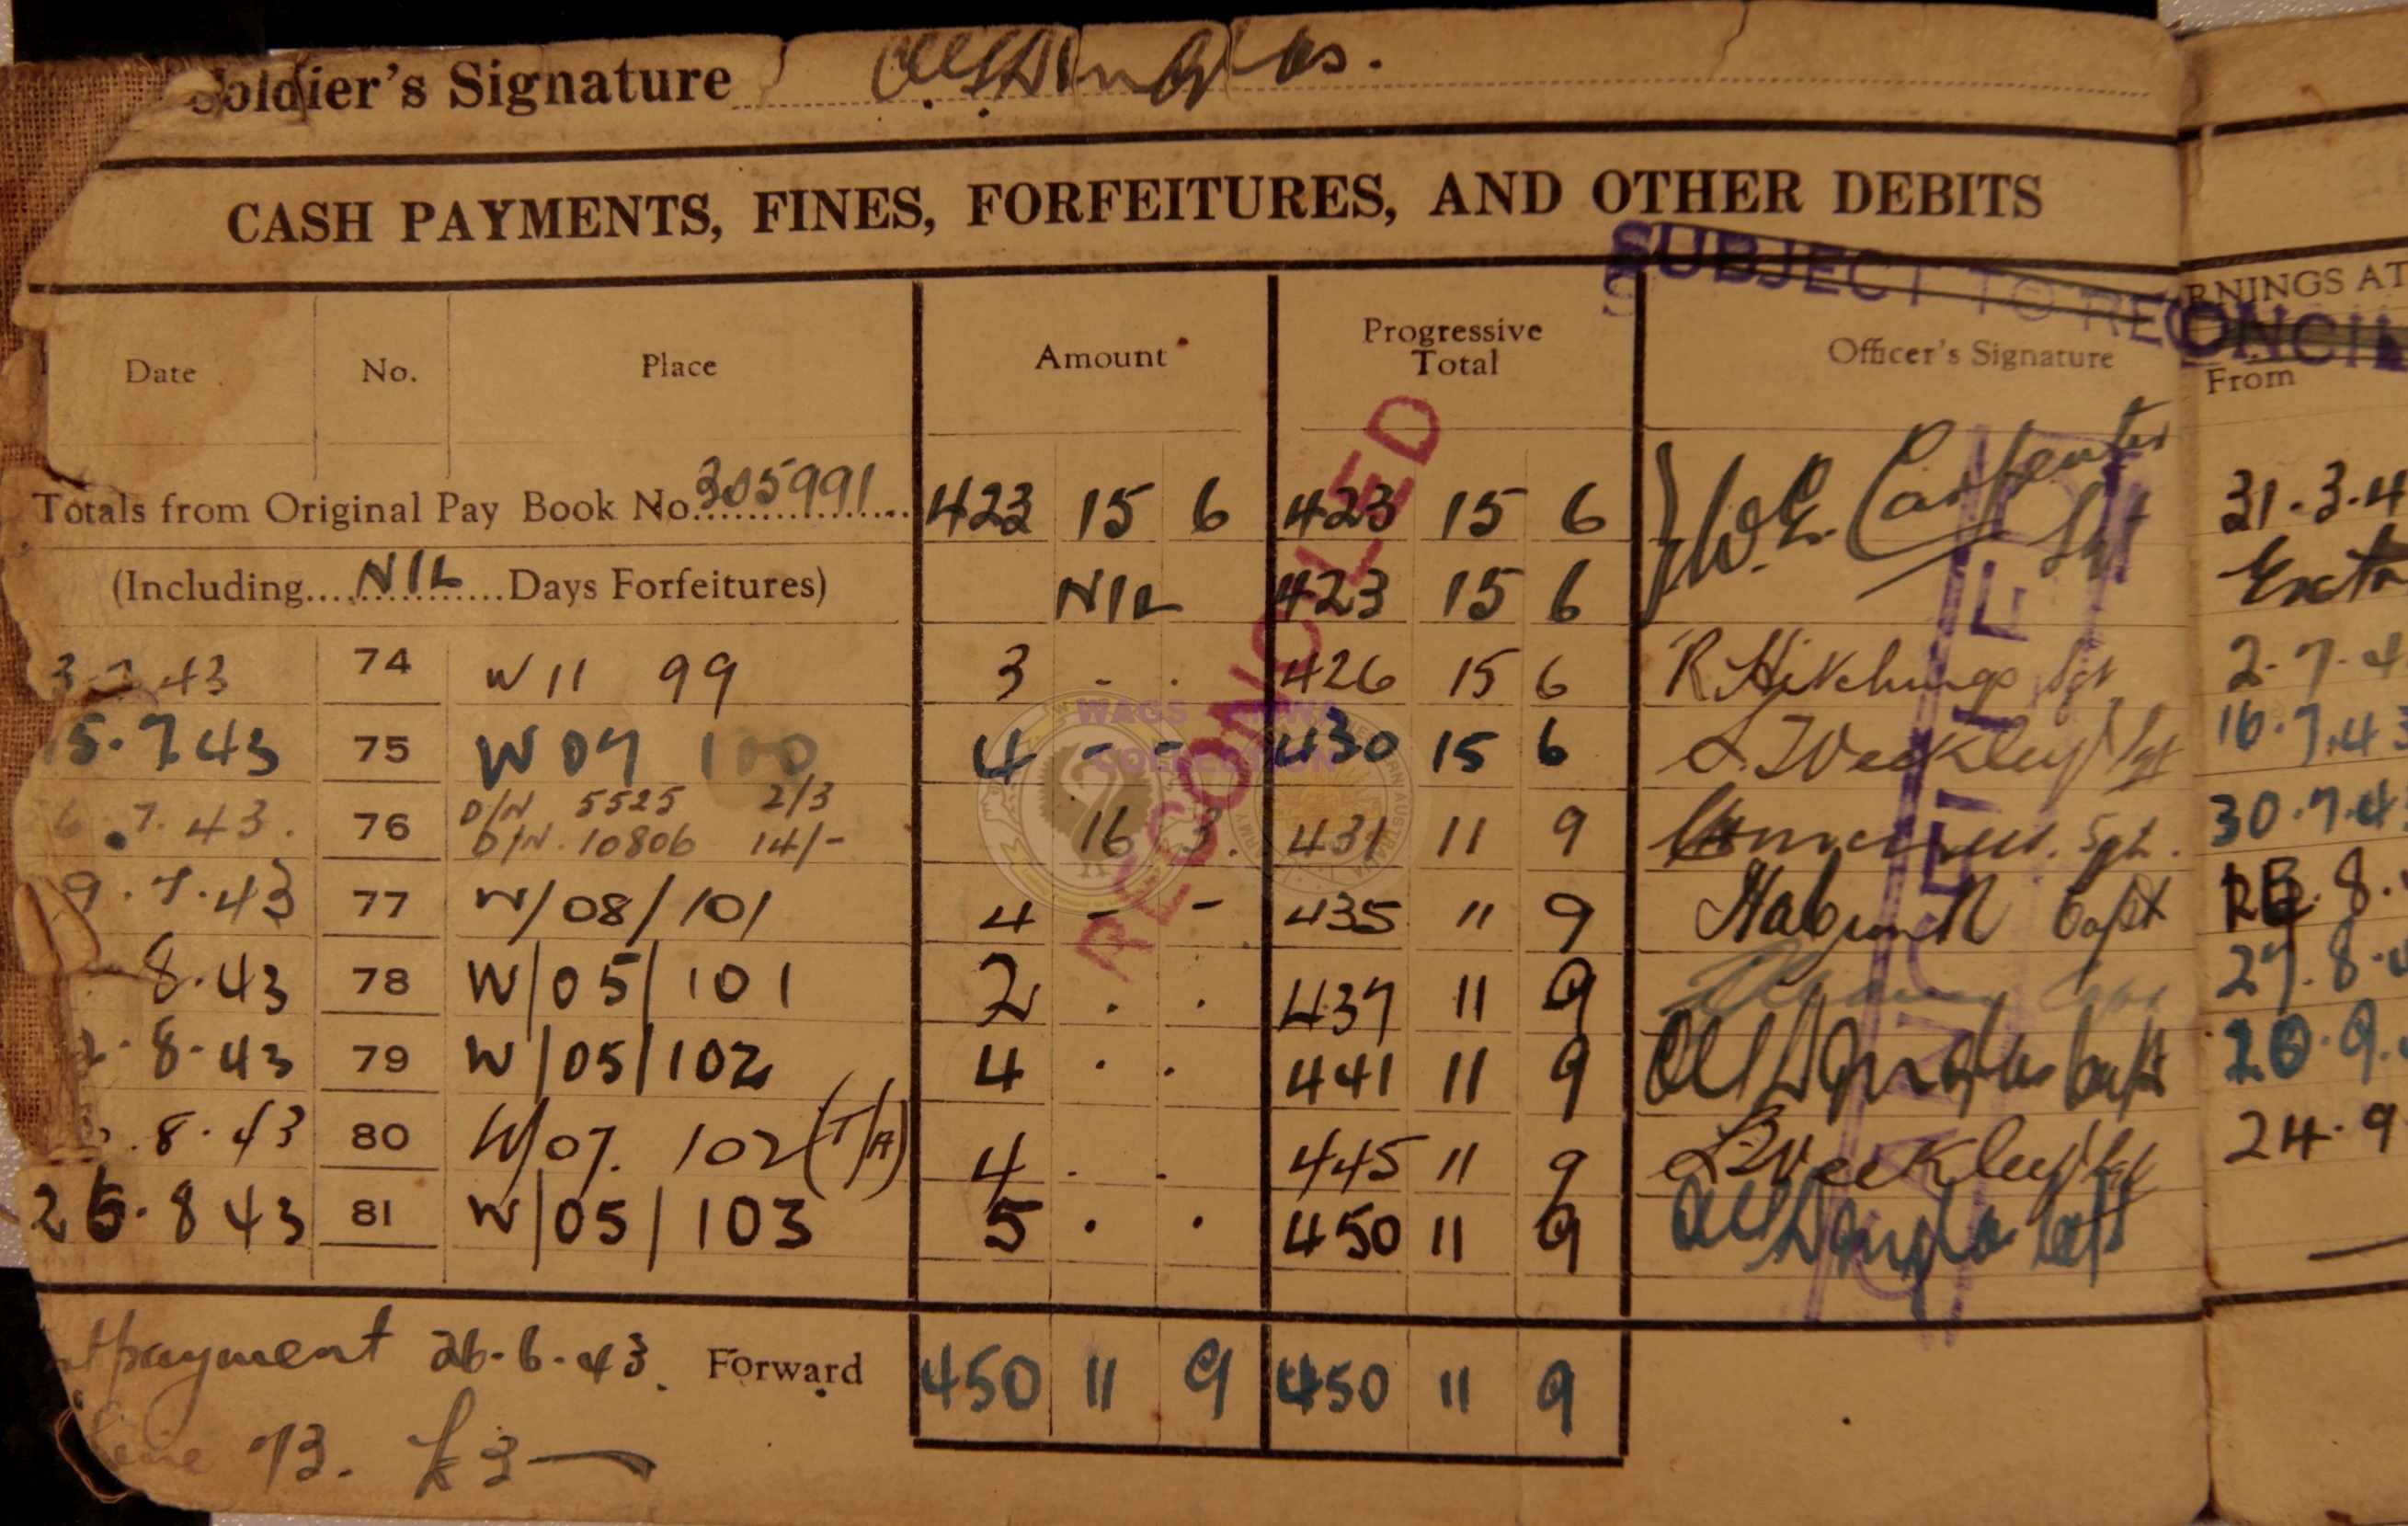 Soldier's Signature
CASH PAYMENTS, FINES, FORFEITURES, AND OTHER DEBITS
SUBJECT TO RECONCIL
RNINGS AT
Date No. Place Amount Progressive Total Officer's Signature From
Totals from Original Pay Book No. 305991 423 15 6 423 15 6 W. E. Carpenter Sgt 31.3.4
(Including.... NIL ....Days Forfeitures) NIL 423 15 6 Extra
43 74 W 11 99 3 - . 426 15 6 R Hitchings Sgt 2.7.4
5.7.43 75 W 07 100 4 - - 430 15 6 Weekley Sgt 16.7.43
6.7.43. 76 D/N 5525 2/3
D/N. 10806 14/- 16 3. 431 11 9 Sgt. 30.7.4
9.7.43 77 W/08/101 4 - - 435 11 9 Capt 8.
8.43 78 W/05/101 2 . . 437 11 9 27.8.4
8.43 79 W/05/102 4 . . 441 11 9 Capt 9.
.8.43 80 W/07. 102 (T/A) 4 . . 445 11 9 Weekley Sgt 24.9
25.8 43 81 W/05/103 5 . . 450 11 9 Capt
payment 26.6.43. Forward 450 11 9 450 11 9
line 73. £3—
RECONCILED
CANCELLED
WAGS
COLLECTION